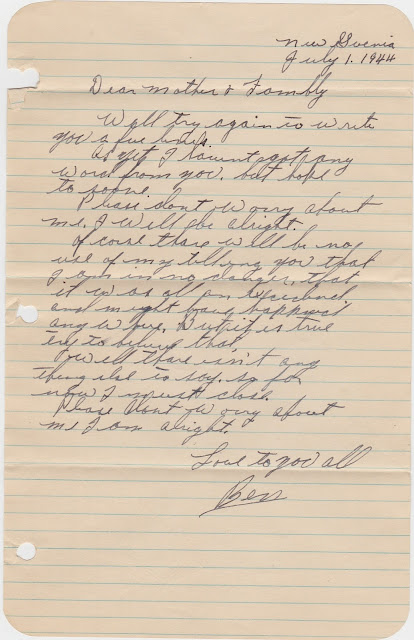 New Guenia
July 1. 1944
Dear Mother & Family
Will try again to write
you a few lines.
As yet I havent got any
word from you. but hope
to soone.
Please dont worry about
me. I will be alright.
of corse there will be no
use of my telling you that
I am in no danger, that
it was all an
and might have happend
any where. But it is true
try to believe that
Well there isn't any
thing else to say. so for
now I must close.
Please dont worry about
me I am alright.
Love to you all
Ben